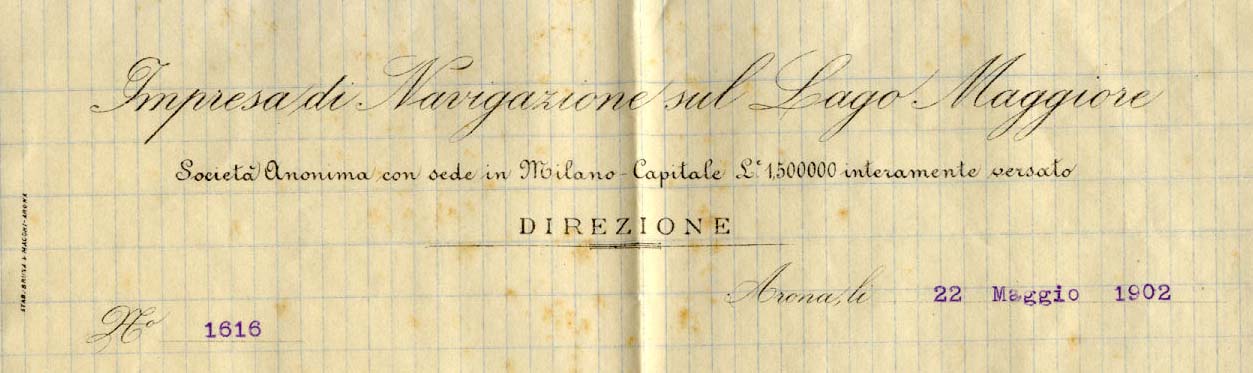 Impresa di Navigazione sul Lago Maggiore
Società Anonima con sede in Milano - Capitale L.e 1,500000 interamente versato
DIREZIONE
Arona, li 22 Maggio 1902
No 1616
STAB. BRUSA & MACCHI-ARONA